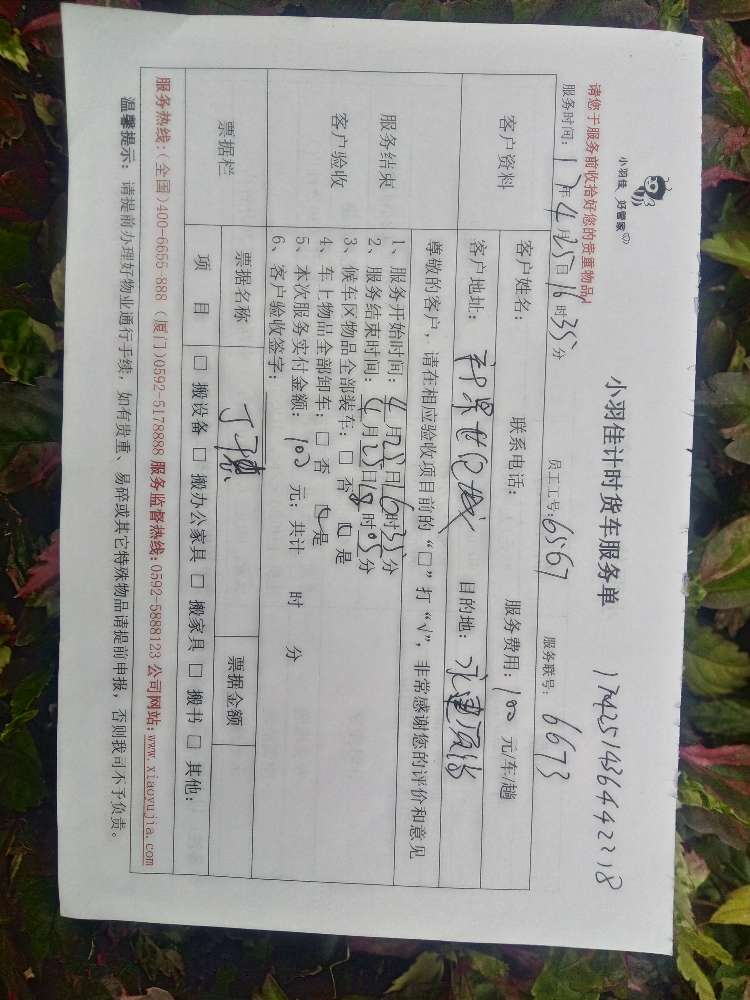 小羽佳 好管家
小羽佳计时货车服务单
请您于服务前收拾好您的贵重物品
服务时间: 17年4月25日16时35分 员工工号: 6567 服务联号: 6673
客户资料
客户姓名: 联系电话: 服务费用: 100 元/车/趟
客户地址: 世纪城 目的地:
服务结束
客户验收
尊敬的客户，请在相应验收项目前的“□”打“√”，非常感谢您的评价和意见
1、服务开始时间: 4月25日16时35分
2、服务结束时间: 4月25日18时05分
3、候车区物品全部装车: □ 否 □ 是
4、车上物品全部卸车: □ 否 □ 是
5、本次服务实付金额: 100 元; 共计 时 分
6、客户验收签字:
票据栏 票据名称 票据金额
项 目 □ 搬设备 □ 搬办公家具 □ 搬家具 □ 搬书 □ 其他:
服务热线:(全国)400-6655-888 (厦门)0592-5178888 服务监督热线:0592-5888123 公司网站:www.xiaoyujia.com
温馨提示: 请提前办理好物业通行手续，如有贵重、易碎或其它特殊物品请提前申报，否则我司不予负责。